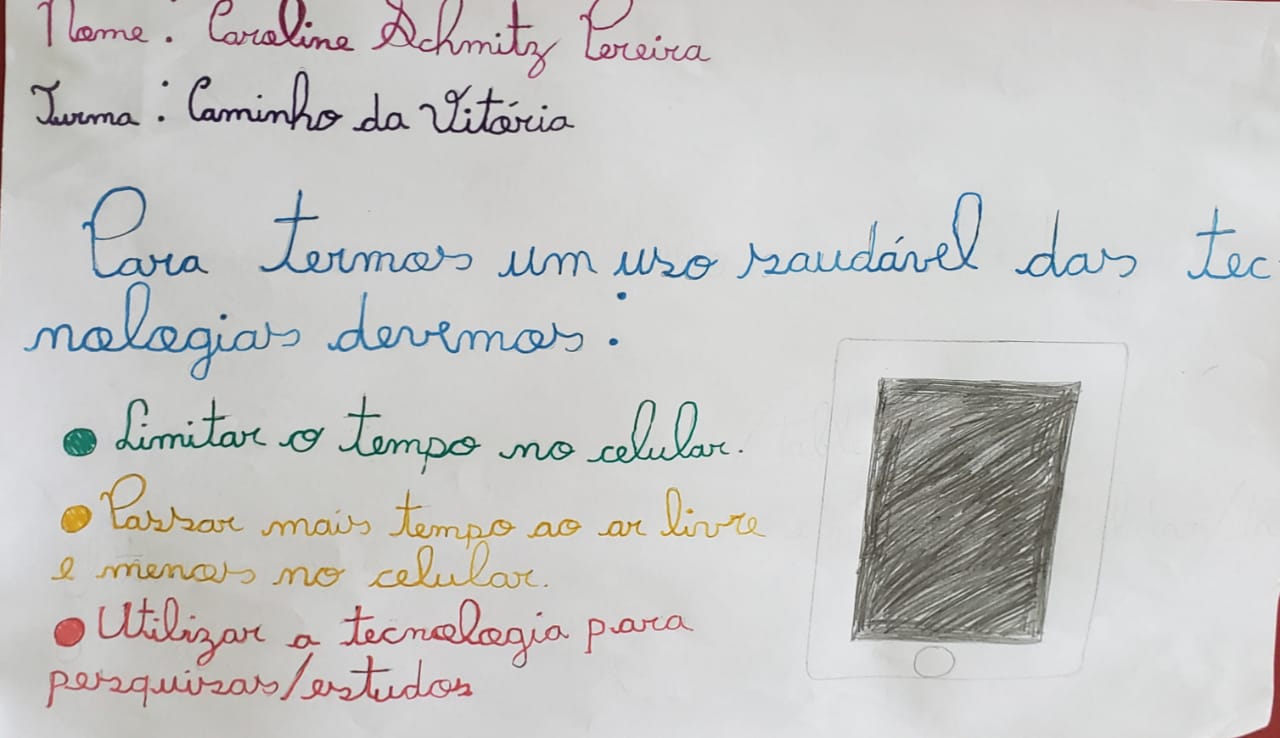 Nome: Caroline Schmitz Pereira
Turma: Caminho da Vitória
Para termos um uso saudável das tec
nologias devemos:
Limitar o tempo no celular.
Passar mais tempo ao ar livre
e menos no celular.
Utilizar a tecnologia para
pesquisas/estudos